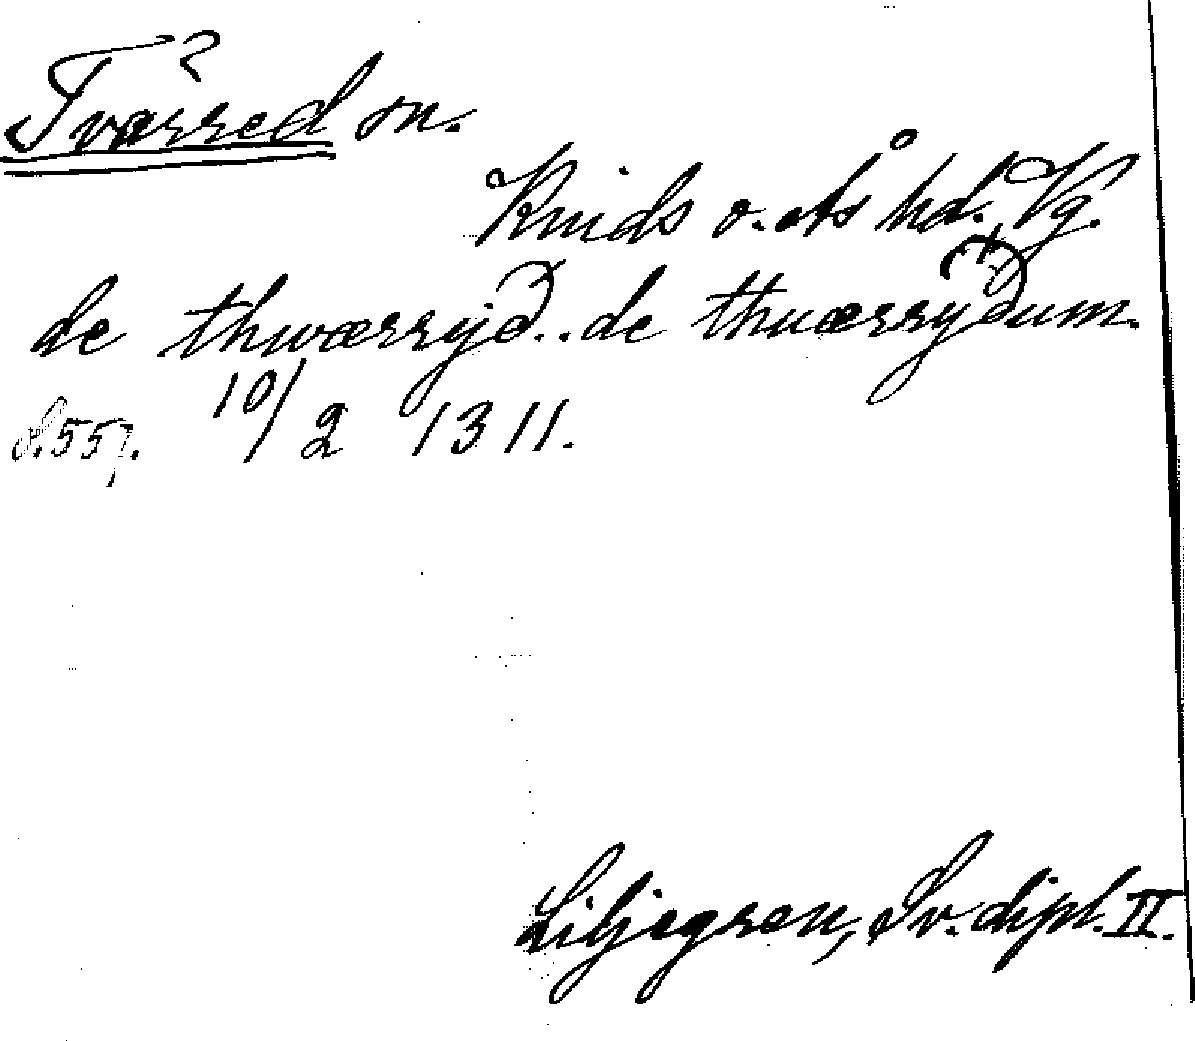 Tvärred sn.
Kinds o. Ås hd. Vg.
de thwærryð.. de thuærryðum.
s. 557. 10/2 1311.
Liljegren, Sv. dipl. II.